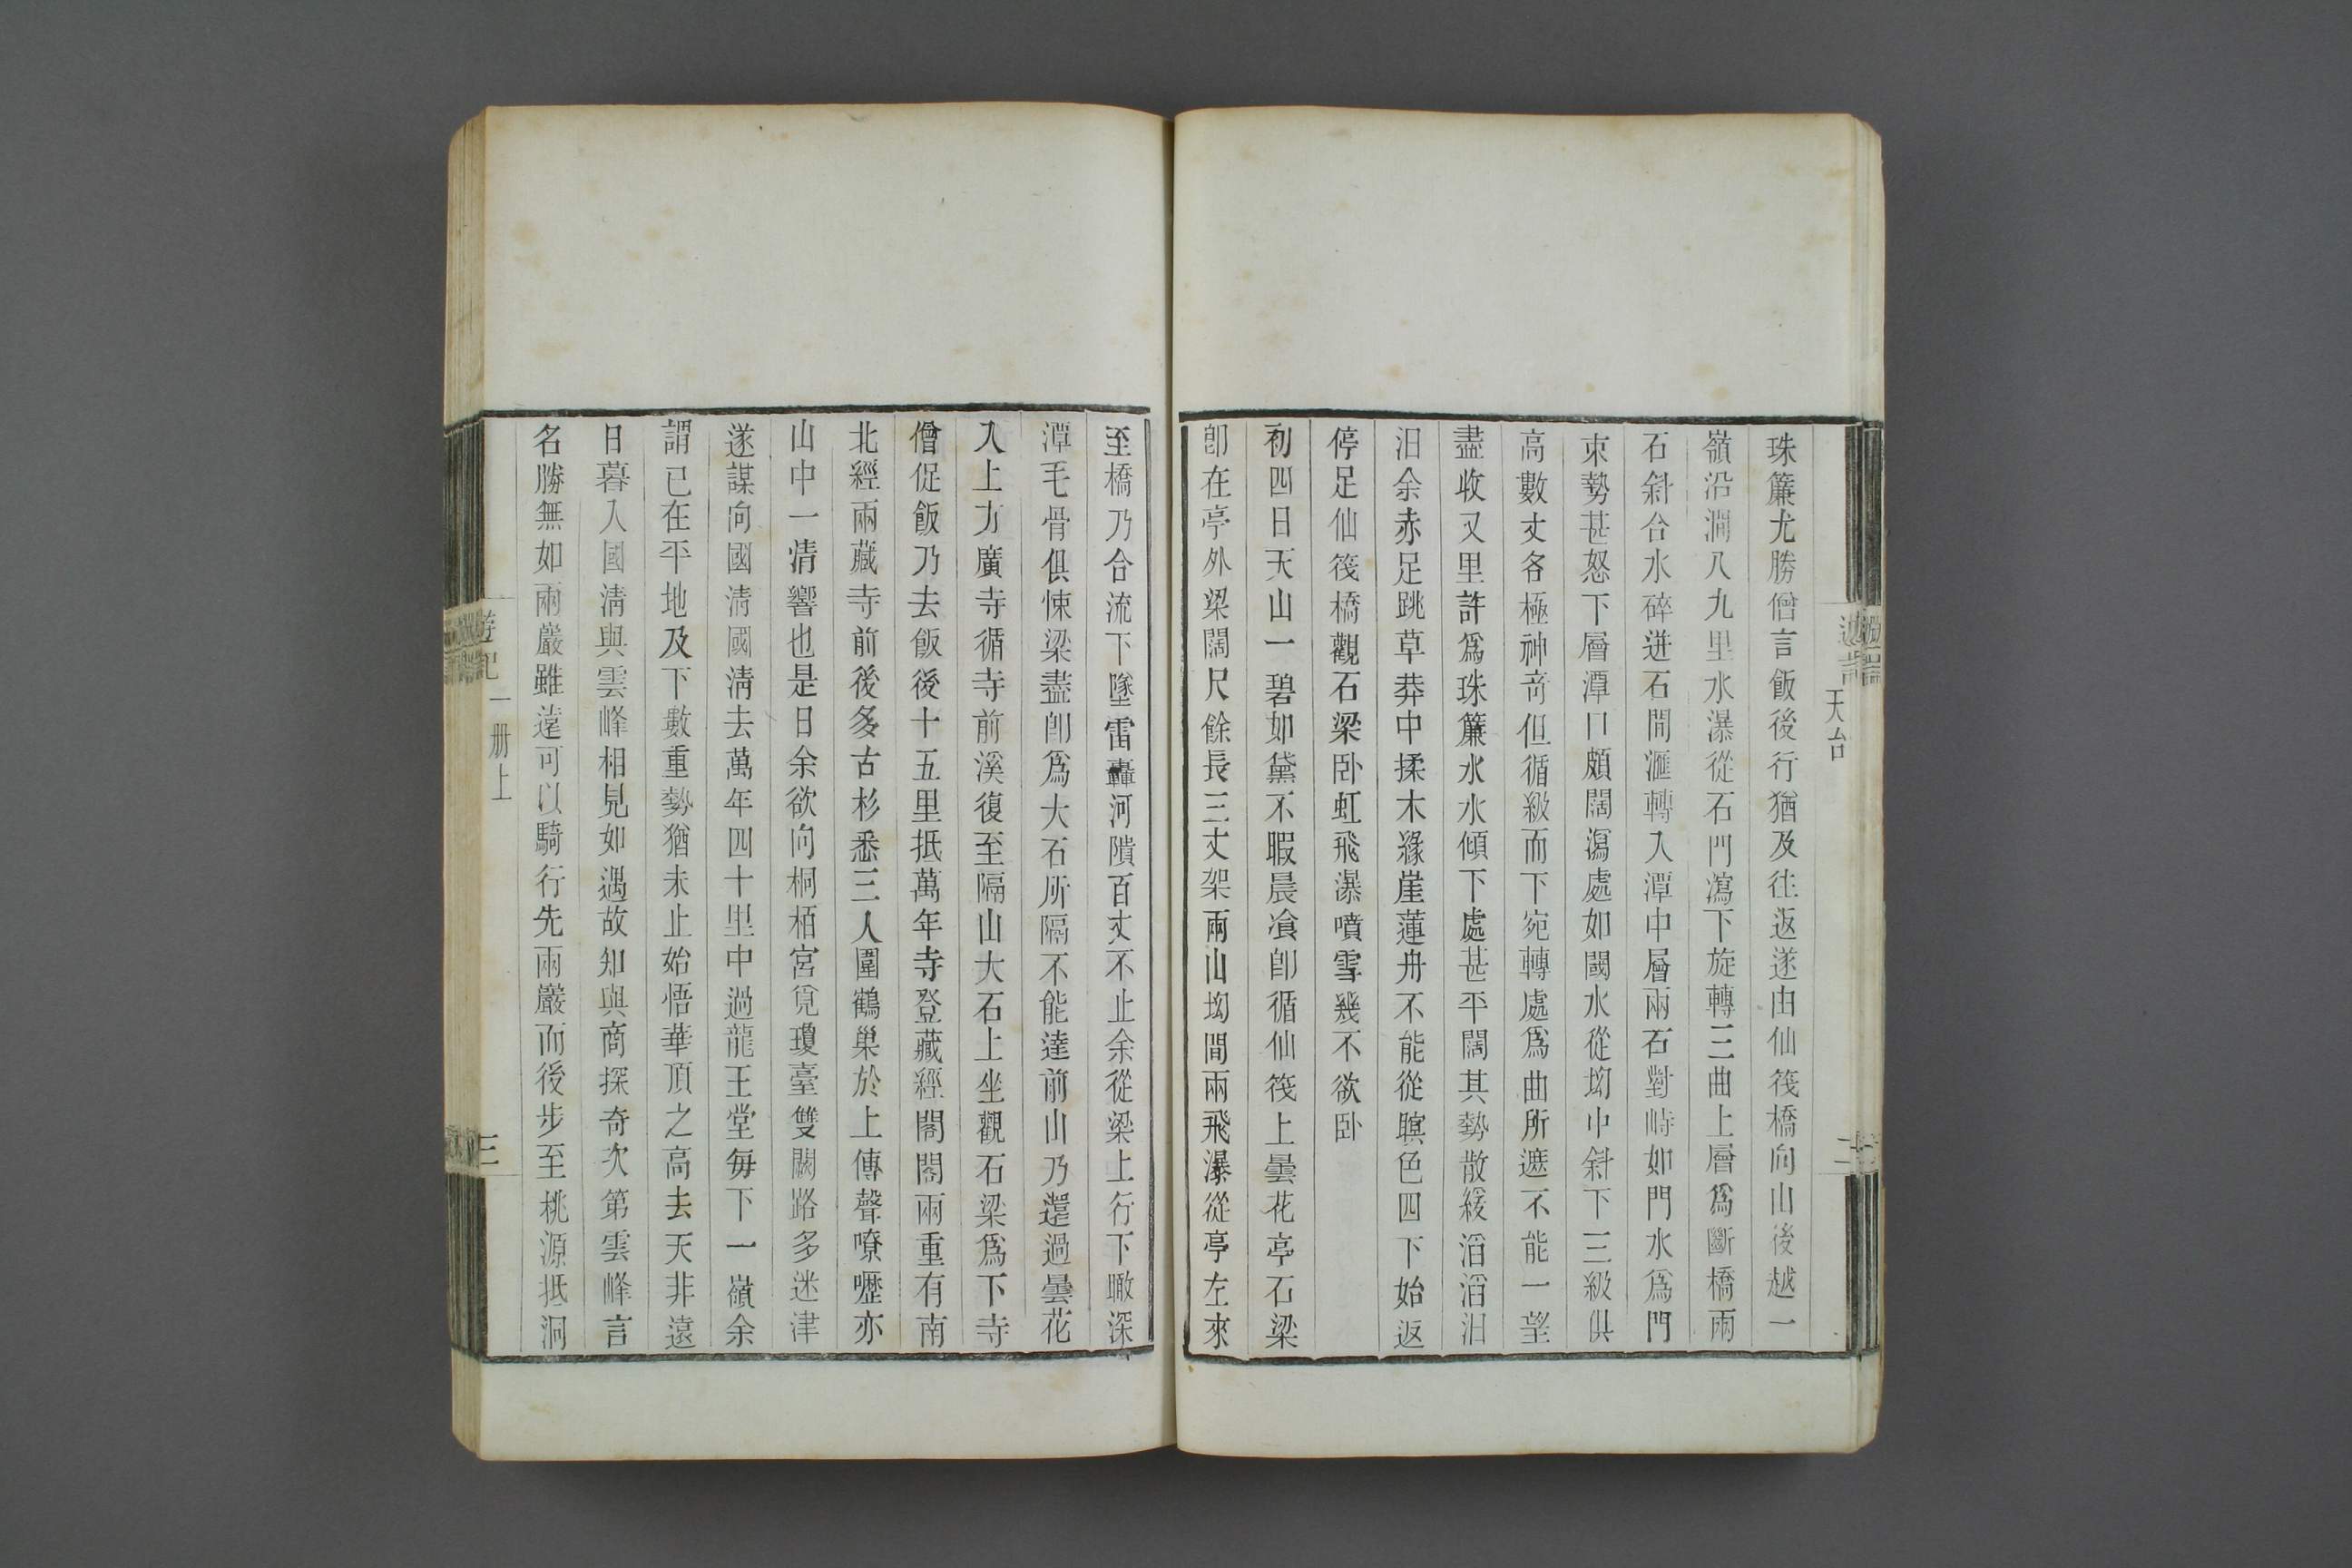 天台
珠簾尤勝僧言飯後行猶及往返遂由仙筏橋向山後越一
嶺沿澗八九里水瀑從石門瀉下旋轉三曲上層爲斷橋兩
石斜合水碎迸石間滙轉入潭中層兩石對峙如門水爲門
束勢甚怒下層潭口頗闊瀉處如閾水從坳中斜下三級俱
高數丈各極神竒但循級而下宛轉處爲曲所遮不能一望
盡收又里許爲珠簾水水傾下處甚平闊其勢散緩滔滔汩
汩余赤足跳草莽中揉木緣崖蓮舟不能從暝色四下始返
停足仙筏橋觀石梁卧虹飛瀑噴雪幾不欲卧
初四日天山一碧如黛不暇晨飡卽循仙筏上曇花亭石梁
卽在亭外梁闊尺餘長三丈架兩山坳間兩飛瀑從亭左來
至橋乃合流下墜雷轟河隤百丈不止余從梁上行下瞰深
潭毛骨俱悚梁盡卽爲大石所隔不能達前山乃還過曇花
入上方廣寺循寺前溪復至隔山大石上坐觀石梁爲下寺
僧促飯乃去飯後十五里抵萬年寺登藏經閣閣兩重有南
北經兩藏寺前後多古杉悉三人圍鶴巢於上傳聲嘹嚦亦
山中一清響也是日余欲向桐栢宮覓瓊臺雙闕路多迷津
遂謀向國清國清去萬年四十里中過龍王堂每下一嶺余
謂已在平地及下數重勢猶未止始悟華頂之高去天非遠
日暮入國清與雲峰相見如遇故知與商探奇次第雲峰言
名勝無如兩巖雖遠可以騎行先兩巖而後步至桃源抵洞
遊記
一册上
三